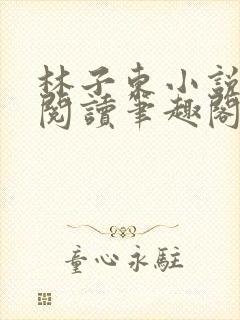 林子東小說
閱讀筆趣閣
童心永駐